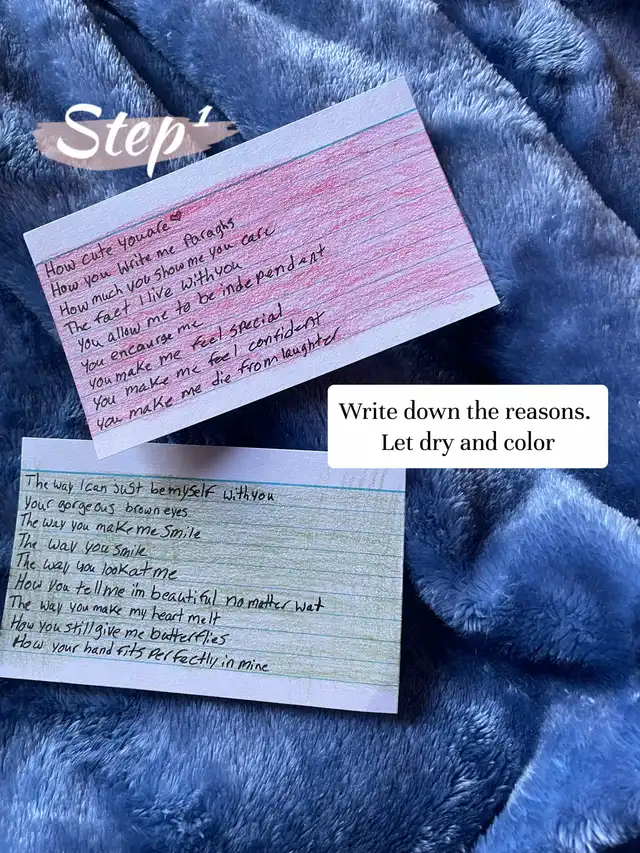 Step 1
How cute you are
How you write me Paraghs
How much you show me you care
The fact I live with you
You allow me to be independent
You encourge me
you make me feel special
You make me feel confident
you make me die from laughter
Write down the reasons.
Let dry and color
The way I can just be myself with you
Your gorgeous brown eyes
The way you make me smile
The way you smile
The way you look at me
How you tell me im beautiful no matter wat
The way you make my heart melt
How you still give me butterflies
How your hand fits perfectly in mine